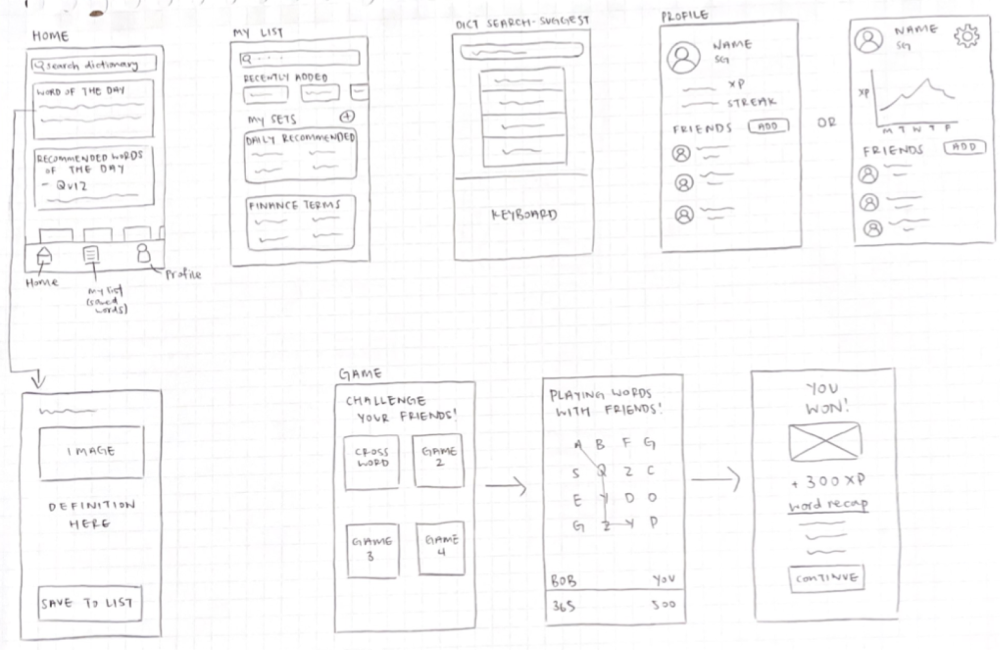 HOME
search dictionary
WORD OF THE DAY
RECOMMENDED WORDS
OF THE DAY
- QUIZ
Home
My list
(saved
words)
Profile
MY LIST
RECENTLY ADDED
MY SETS
DAILY RECOMMENDED
FINANCE TERMS
DICT SEARCH-SUGGEST
KEYBOARD
PROFILE
NAME
XP
STREAK
FRIENDS ADD
OR
NAME
XP
M T W T F
FRIENDS ADD
IMAGE
DEFINITION
HERE
SAVE TO LIST
GAME
CHALLENGE
YOUR FRIENDS!
CROSS
WORD
GAME
2
GAME
3
GAME
4
PLAYING WORDS
WITH FRIENDS!
A B F G
S Q Z C
E Y D O
G Z Y P
BOB YOU
365 500
YOU
WON!
+ 300 XP
word recap
CONTINUE